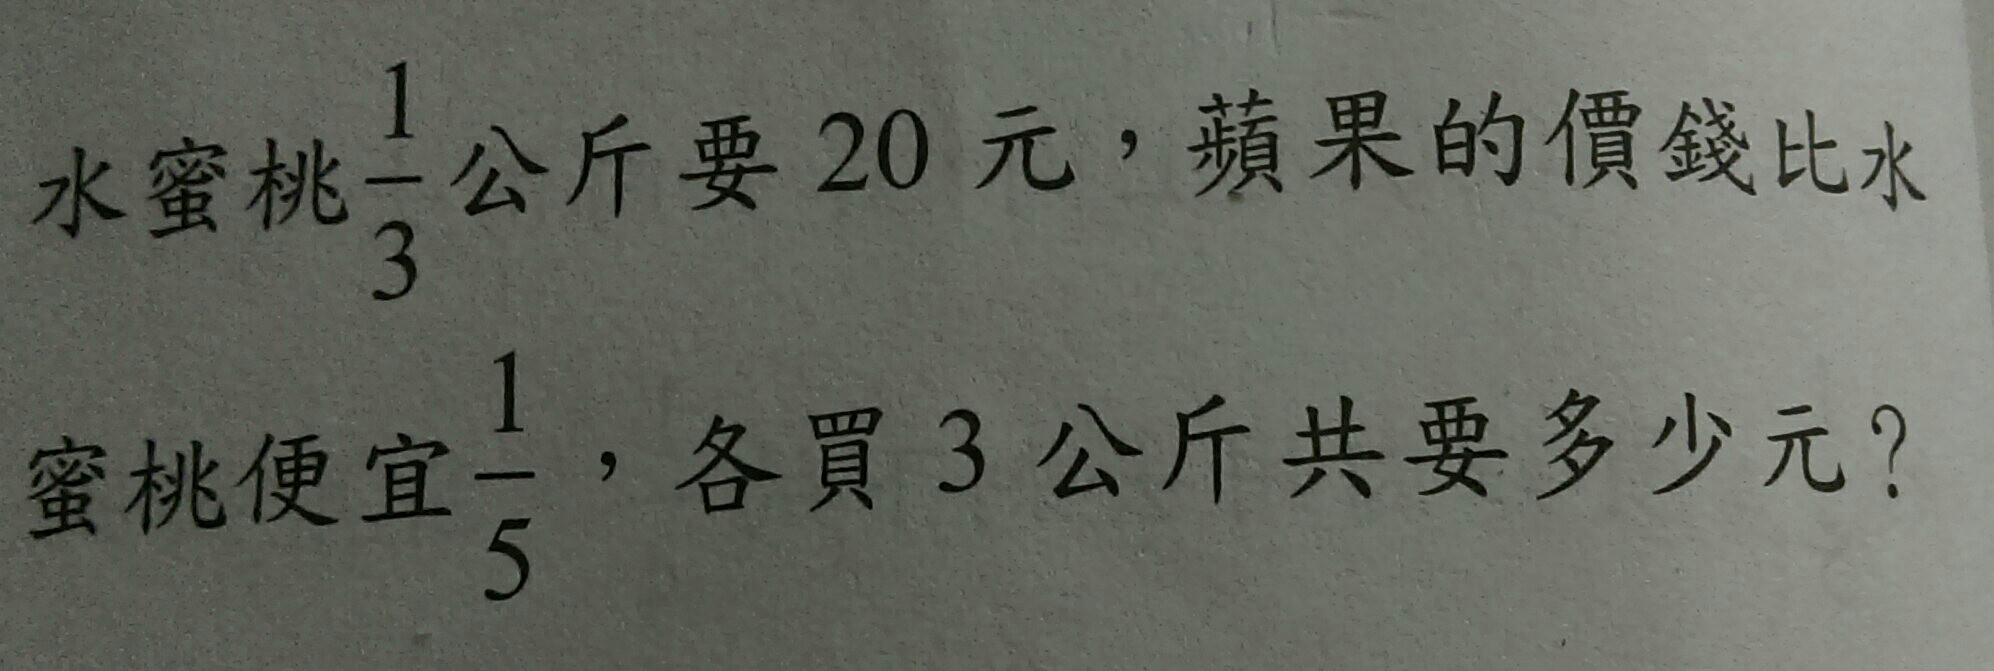 水蜜桃1/3公斤要 20 元，蘋果的價錢比水
蜜桃便宜1/5，各買 3 公斤共要多少元？